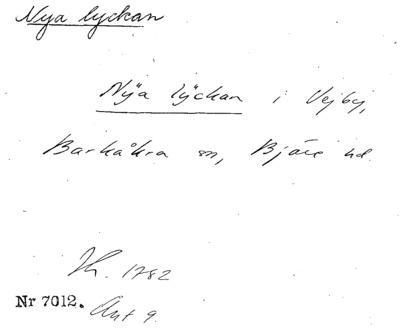 Nya lyckan
Nÿa lÿckan i Vejby,
Barkåkra sn, Bjäre hd.
Jh. 1782
Nr 7012.
Ant 9.